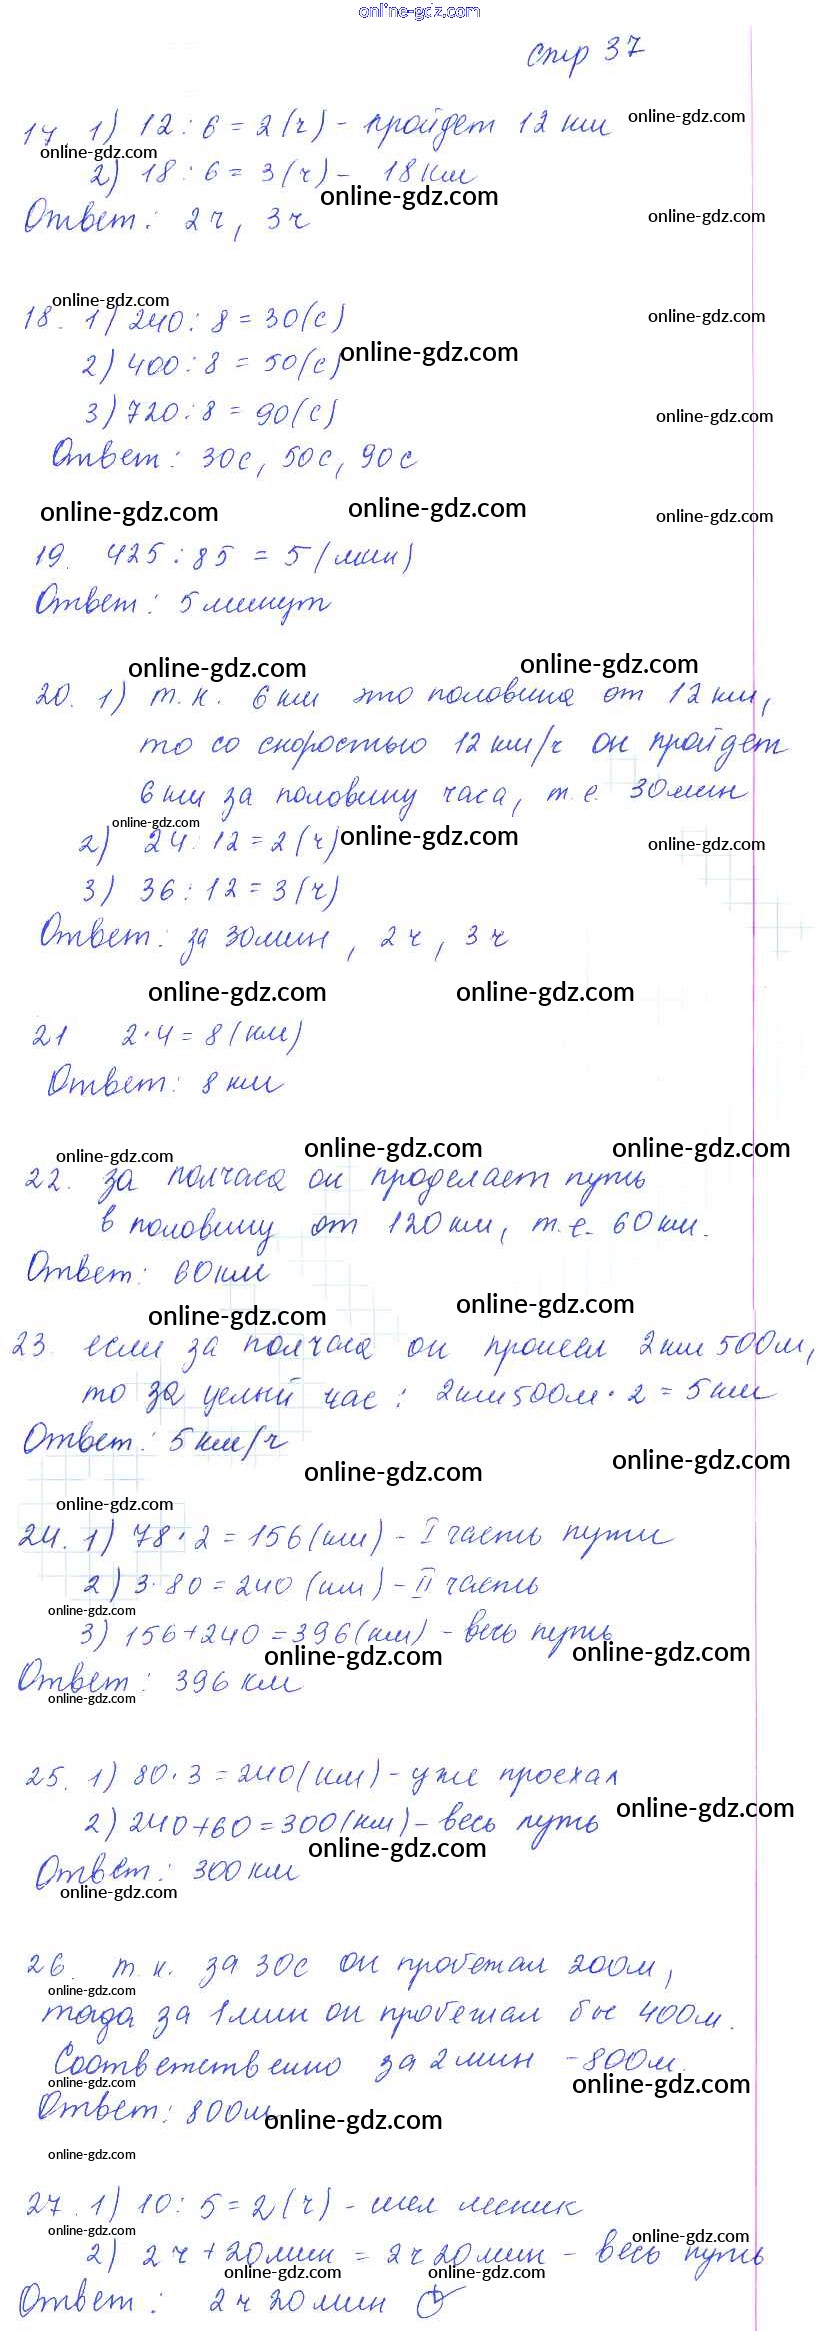 online-gdz.com
стр 37
17. 1) 12 : 6 = 2 (ч) - пройдет 12 км
online-gdz.com
online-gdz.com
2) 18 : 6 = 3 (ч) - 18 км
online-gdz.com
Ответ: 2 ч, 3 ч
online-gdz.com
online-gdz.com
18. 1) 240 : 8 = 30 (с)
online-gdz.com
2) 400 : 8 = 50 (с)
online-gdz.com
3) 720 : 8 = 90 (с)
online-gdz.com
Ответ: 30 с, 50 с, 90 с
online-gdz.com
online-gdz.com
online-gdz.com
19. 425 : 85 = 5 (мин)
Ответ: 5 минут
online-gdz.com
online-gdz.com
20. 1) т.к. 6 км это половина от 12 км,
то со скоростью 12 км/ч он пройдет
6 км за половину часа, т.е. 30 мин
online-gdz.com
2) 24 : 12 = 2 (ч)
online-gdz.com
online-gdz.com
3) 36 : 12 = 3 (ч)
Ответ: за 30 мин, 2 ч, 3 ч
online-gdz.com
online-gdz.com
21 2 · 4 = 8 (км)
Ответ: 8 км
online-gdz.com
online-gdz.com
online-gdz.com
22. за полчаса он проделает путь
в половину от 120 км, т.е. 60 км.
Ответ: 60 км
online-gdz.com
online-gdz.com
23. если за полчаса он прошел 2 км 500 м,
то за целый час: 2 км 500 м · 2 = 5 км
Ответ: 5 км/ч
online-gdz.com
online-gdz.com
online-gdz.com
24. 1) 78 · 2 = 156 (км) - I часть пути
2) 3 · 80 = 240 (км) - II часть
online-gdz.com
3) 156 + 240 = 396 (км) - весь путь
online-gdz.com
online-gdz.com
Ответ: 396 км
online-gdz.com
25. 1) 80 · 3 = 240 (км) - уже проехал
online-gdz.com
2) 240 + 60 = 300 (км) - весь путь
online-gdz.com
Ответ: 300 км
online-gdz.com
26. т.к. за 30 с он пробежал 200 м,
online-gdz.com
тогда за 1 мин он пробежал бы 400 м.
Соответственно за 2 мин - 800 м.
online-gdz.com
online-gdz.com
Ответ: 800 м
online-gdz.com
online-gdz.com
27. 1) 10 : 5 = 2 (ч) - шел лесник
online-gdz.com
online-gdz.com
2) 2 ч + 20 мин = 2 ч 20 мин - весь путь
online-gdz.com
online-gdz.com
Ответ: 2 ч 20 мин